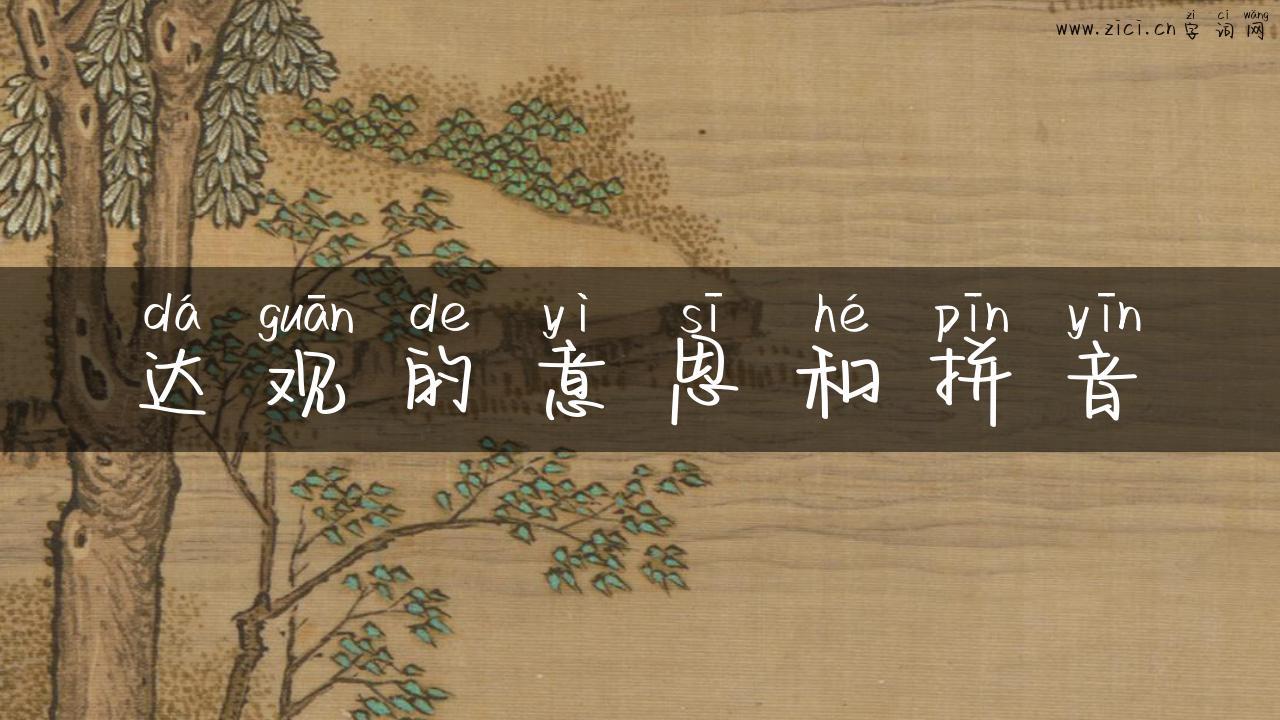 zì cí wǎng
www.zici.cn 字 词 网
dá guān de yì sī hé pīn yīn
达 观 的 意 思 和 拼 音